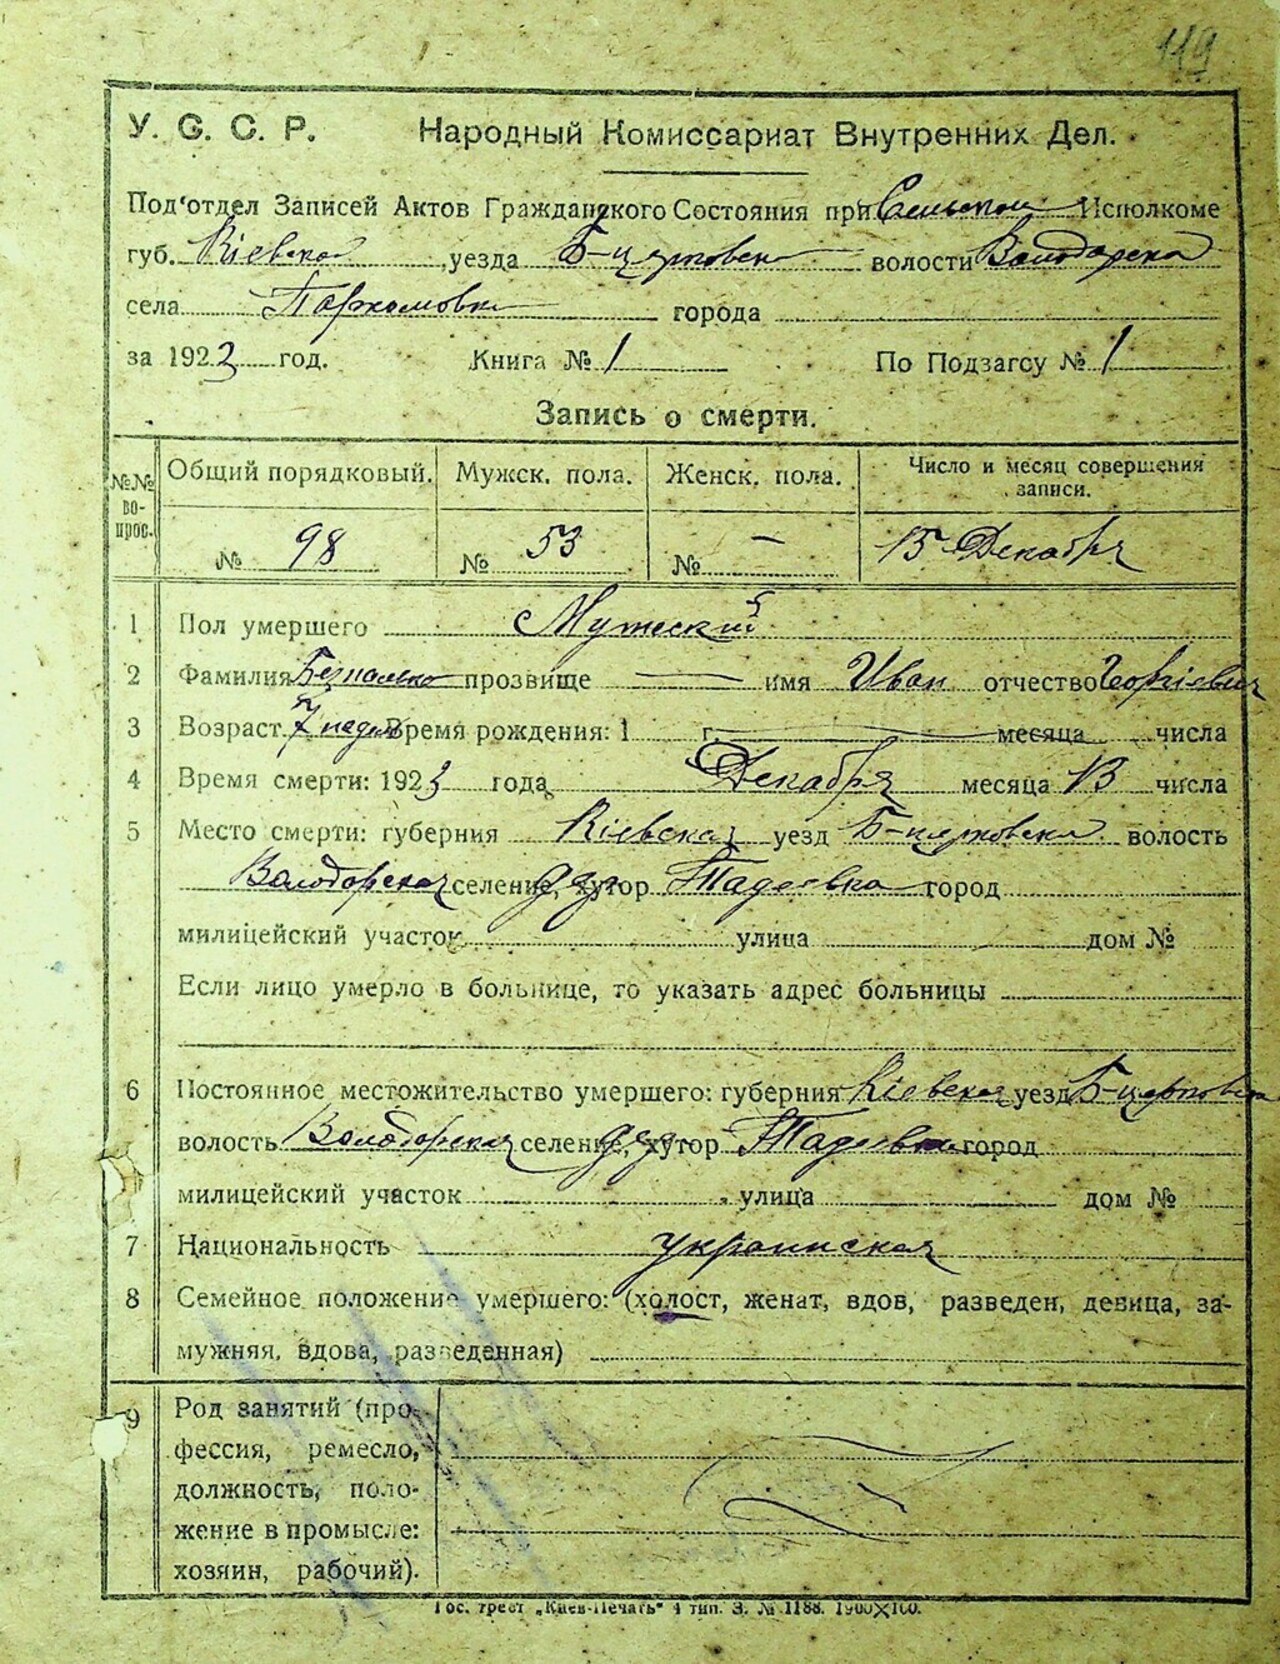 119
У. С. С. Р. Народный Комиссариат Внутренних Дел.
Под'отдел Записей Актов Гражданского Состояния при Сельском Исполкоме
губ. Кіевской уезда Б-церковско волости Володарско
села Пархомовки города
за 1923 год. Книга № 1 По Подзагсу № 1
Запись о смерти.
№№ вопрос. Общий порядковый. Мужск. пола. Женск. пола. Число и месяц совершения записи.
№ 98 № 53 № — 15 Декабря
1 Пол умершего Мужеский
2 Фамилия прозвище — имя Иван отчество Георгіевич
3 Возраст 7 недель Время рождения: 1 г. месяца числа
4 Время смерти: 1923 года Декабря месяца 13 числа
5 Место смерти: губерния Кіевская уезд Б-церковски волость
Володарская селение, хутор Тадеевка город
милицейский участок улица дом №
Если лицо умерло в больнице, то указать адрес больницы
6 Постоянное местожительство умершего: губерния Кіевская уезд Б-церковск
волость Володорская селение, хутор Тадеевка город
милицейский участок улица дом №
7 Национальность украинская
8 Семейное положение умершего: (холост, женат, вдов, разведен, девица, за-
мужняя, вдова, разведенная)
9 Род занятий (про-
фессия, ремесло,
должность, поло-
жение в промысле:
хозяин, рабочий).
Гос. трест „Киев-Печать" 4 тип. З. № 1188. 1900X100.